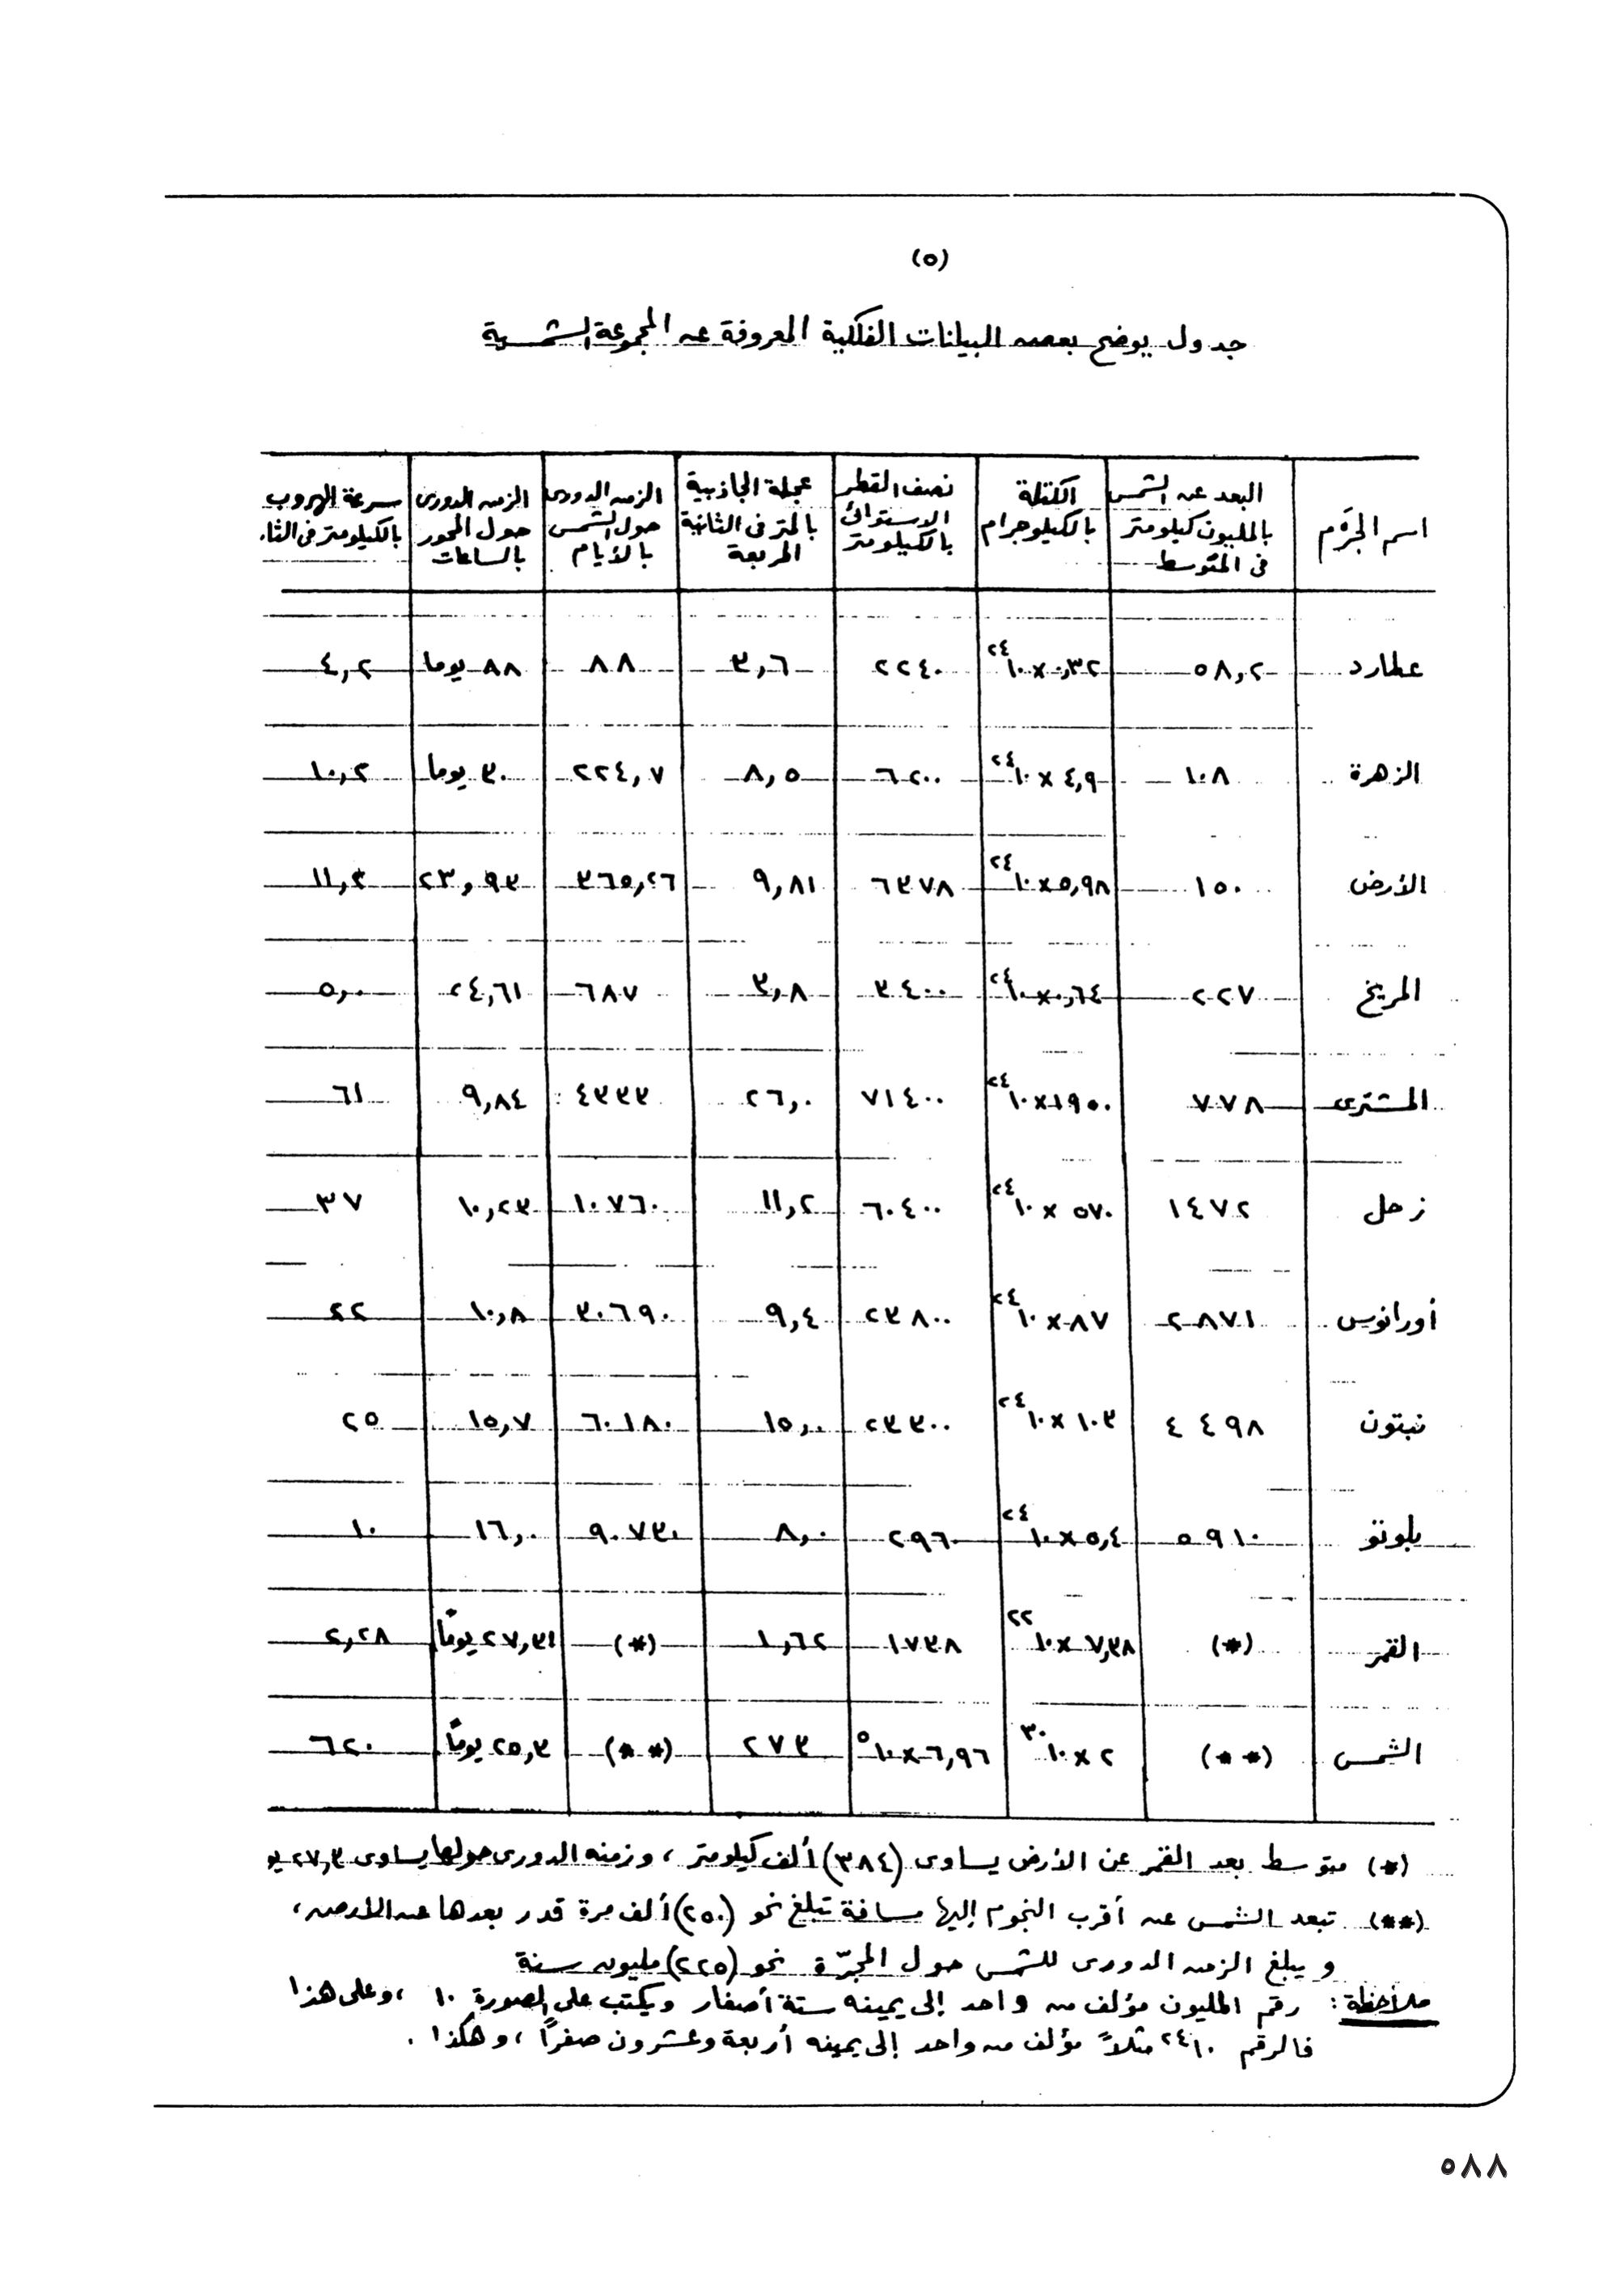 (٥)
جدول يوضح بعض البيانات الفلكية المعروفة عن المجموعة الشمسية
اسم الجِرْم | البعد عن الشمس بالمليون كيلومتر فى المتوسط | الكتلة بالكيلوجرام | نصف القطر الاستوائى بالكيلومتر | عجلة الجاذبية بالمتر فى الثانية المربعة | الزمن الدورى حول الشمس بالأيام | الزمن الدورى حول المحور بالساعات | سرعة الهروب بالكيلومتر فى الثا
عطارد | ٥٨,٢ | ٠,٣٢ × ١٠^٢٤ | ٢٢٤٠ | ٣,٦ | ٨٨ | ٨٨ يوما | ٤,٢
الزهرة | ١٠٨ | ٤,٩ × ١٠^٢٤ | ٦٢٠٠ | ٨,٥ | ٢٢٤,٧ | ٣٠ يوما | ١٠,٢
الأرض | ١٥٠ | ٥,٩٨ × ١٠^٢٤ | ٦٣٧٨ | ٩,٨١ | ٣٦٥,٢٦ | ٢٣,٩٣ | ١١,٢
المريخ | ٢٢٧ | ٠,٦٤ × ١٠^٢٤ | ٣٤٠٠ | ٣,٨ | ٦٨٧ | ٢٤,٦١ | ٥,٠
المشترى | ٧٧٨ | ١٩٥٠ × ١٠^٢٤ | ٧١٤٠٠ | ٢٦,٠ | ٤٣٣٣ | ٩,٨٤ | ٦١
زحل | ١٤٧٢ | ٥٧٠ × ١٠^٢٤ | ٦٠٤٠٠ | ١١,٢ | ١٠٧٦٠ | ١٠,٢٣ | ٣٧
أورانوس | ٢٨٧١ | ٨٧ × ١٠^٢٤ | ٢٣٨٠٠ | ٩,٤ | ٣٠٦٩٠ | ١٠,٨ | ٢٢
نبتون | ٤٤٩٨ | ١٠٣ × ١٠^٢٤ | ٢٣٣٠٠ | ١٥,٠ | ٦٠١٨٠ | ١٥,٧ | ٢٥
بلوتو | ٥٩١٠ | ٥,٤ × ١٠^٢٤ | ٢٩٦٠ | ٨,٠ | ٩٠٧٣٠ | ١٦,٠ | ١٠
القمر | (*) | ٧,٣٨ × ١٠^٢٢ | ١٧٣٨ | ١,٦٢ | (*) | ٢٧,٣١ يومًا | ٢,٢٨
الشمس | (**) | ٢ × ١٠^٣٠ | ٦,٩٦ × ١٠^٥ | ٢٧٣ | (**) | ٢٥,٣ يومًا | ٦٢٠
(*) متوسط بعد القمر عن الأرض يساوى (٣٨٤) ألف كيلومتر ، وزمنه الدورى حولها يساوى ٢٧,٣ يو
(**) تبعد الشمس عن أقرب النجوم إليها مسافة تبلغ نحو (٢٥٠) ألف مرة قدر بعدها عن الأرض ،
و يبلغ الزمن الدورى للشمس حول المجرّة نحو (٢٢٥) مليون سنة
ملاحظة : رقم المليون مؤلف من واحد إلى يمينه ستة أصفار ويكتب على الصورة ١٠ ، وعلى هذا
فالرقم ١٠^٢٤ مثلاً مؤلف من واحد إلى يمينه أربعة وعشرون صفراً ، وهكذا .
٥٨٨